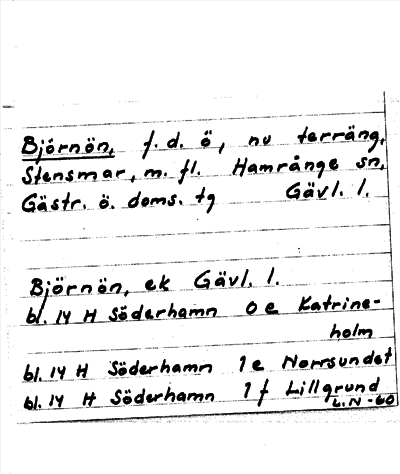 Björnön, f.d. ö, nu terräng,
Stensmar, m. fl. Hamrånge sn,
Gästr. ö. doms. tg Gävl. l.
Björnön, ek Gävl. l.
bl. 14 H Söderhamn 0e Katrine-
holm
bl. 14 H Söderhamn 1e Norrsundet
bl. 14 H Söderhamn 1f Lillgrund
L.N-60